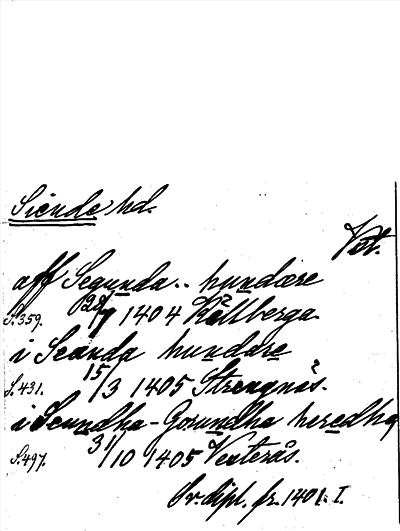 Siende hd.
Vet.
aff Segunda.. hundære
S. 359. 28/7 1404 Källberga
i Seanda hundare
S. 431. 15/3 1405 Strengnäs.
i Seundha-Gorundha heredhe
S. 497. 31/10 1405 Vesterås.
Sv. dipl. fr. 1401. I.